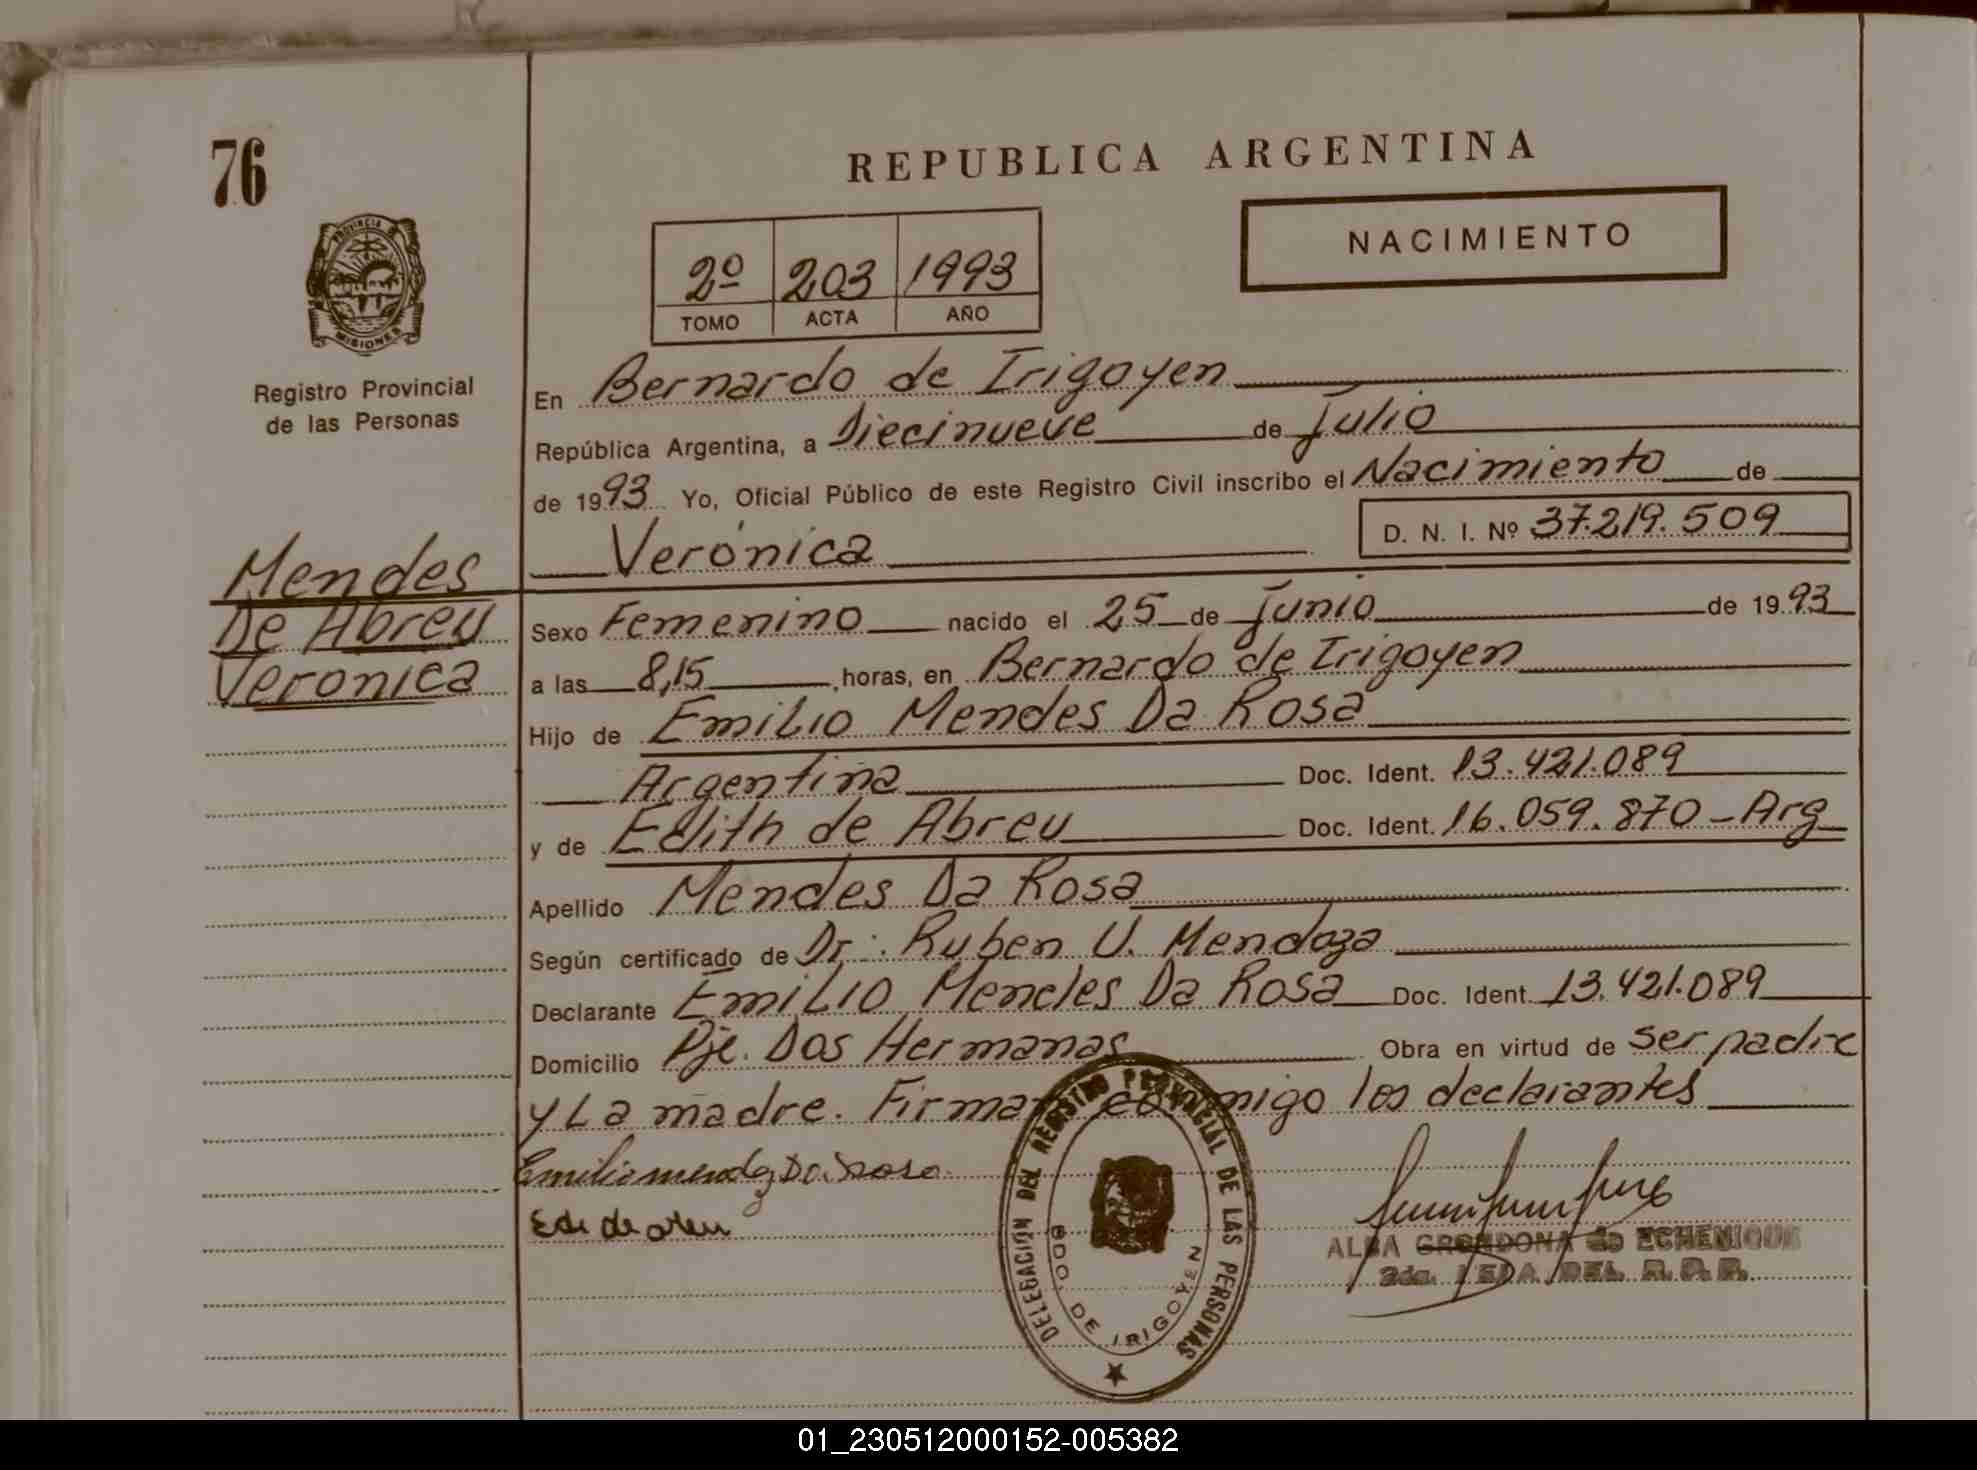 76
REPUBLICA ARGENTINA
NACIMIENTO
2º 203 1993
TOMO ACTA AÑO
PROVINCIA DE
MISIONES
Registro Provincial
de las Personas
En Bernardo de Irigoyen
República Argentina, a Diecinueve de Julio
de 1993 Yo, Oficial Público de este Registro Civil inscribo el Nacimiento de
D. N. I. Nº 37.219.509
Verónica
Mendes
De Abreu
Veronica
Sexo Femenino nacido el 25 de Junio de 1993
a las 8,15, horas, en Bernardo de Irigoyen
Hijo de Emilio Mendes Da Rosa
Argentina Doc. Ident. 13.421.089
y de Edith de Abreu Doc. Ident. 16.059.870 - Arg
Apellido Mendes Da Rosa
Según certificado de Dr: Ruben U. Mendoza
Declarante Emilio Mendes Da Rosa Doc. Ident. 13.421.089
Domicilio Pje. Dos Hermanas Obra en virtud de ser padre
y La madre. Firman conmigo los declarantes
Emilio mendez Da Rosa
DELEGACION DEL REGISTRO PROVINCIAL DE LAS PERSONAS
BDO. DE IRIGOYEN
ALBA GRONDONA de ECHENIQUE
2da. JEFA DEL R.P.P.
01_230512000152-005382